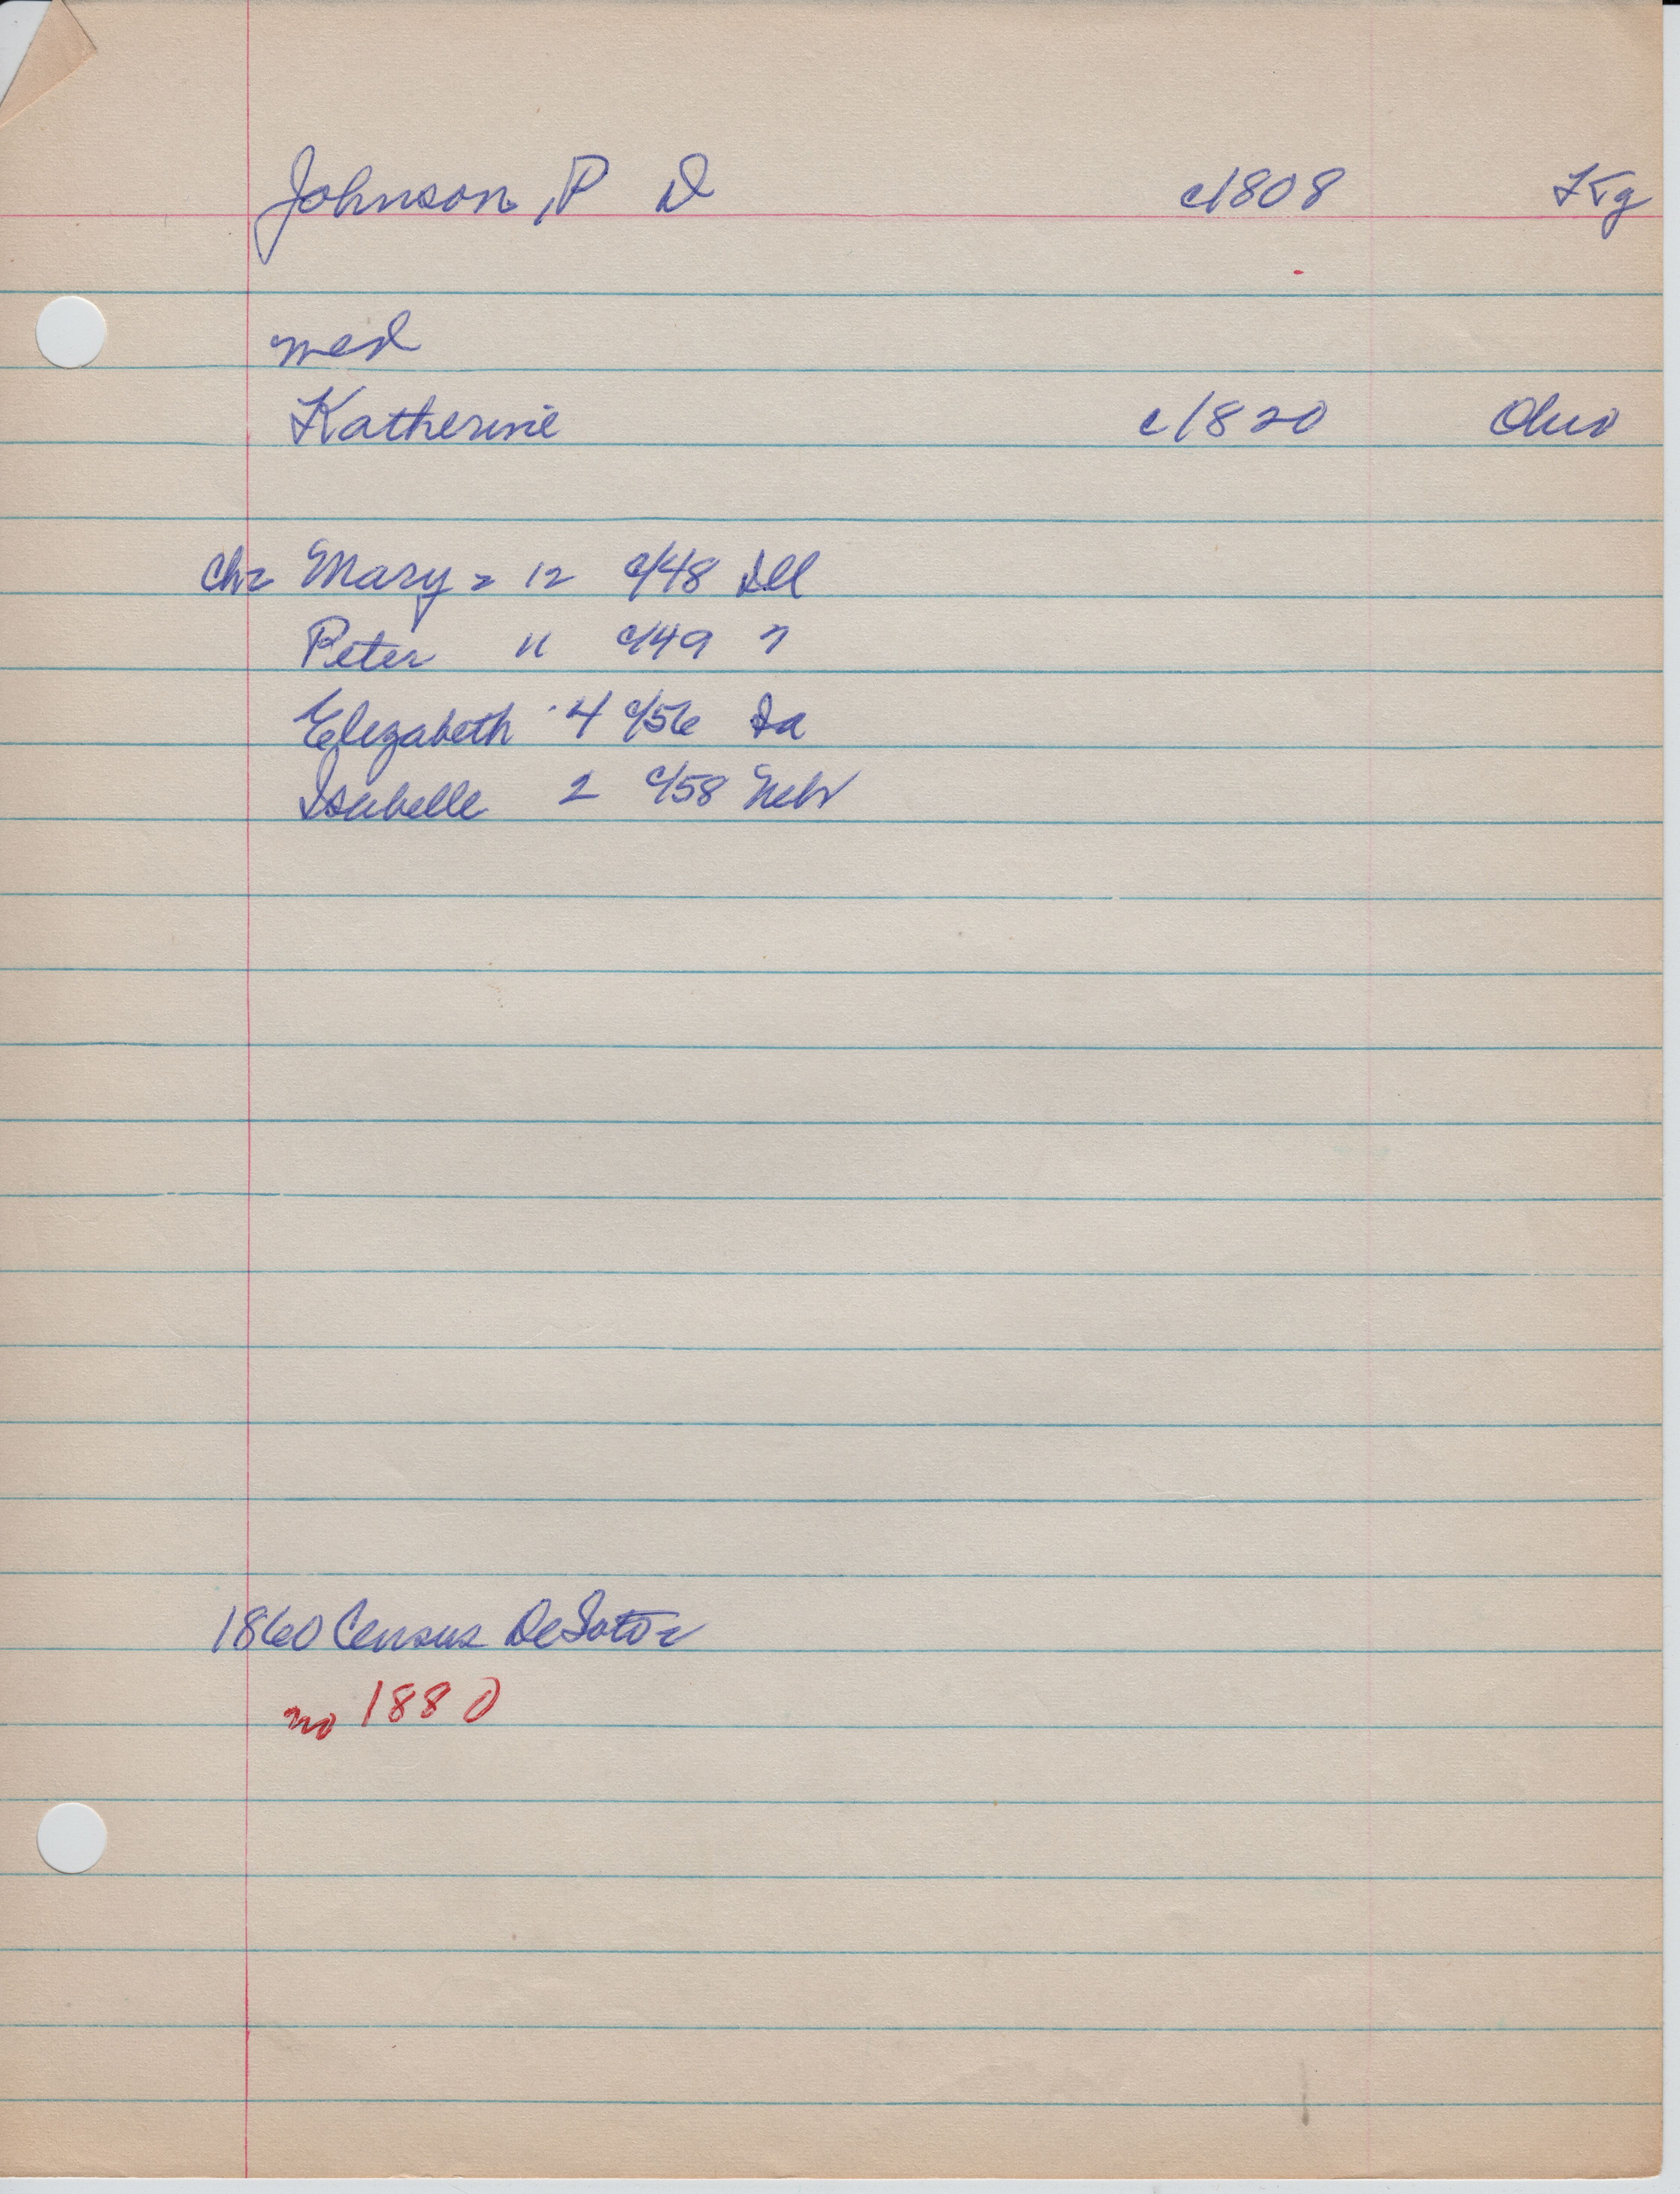 Johnson, P D c1808 Ky
med
Katherine c1820 Ohio
ch= Mary = 12 c/48 Ill
Peter 11 c/49 "
Elizabeth 4 c/56 Ia
Isabelle 2 c/58 Nebr
1860 Census DeSoto =
no 1880